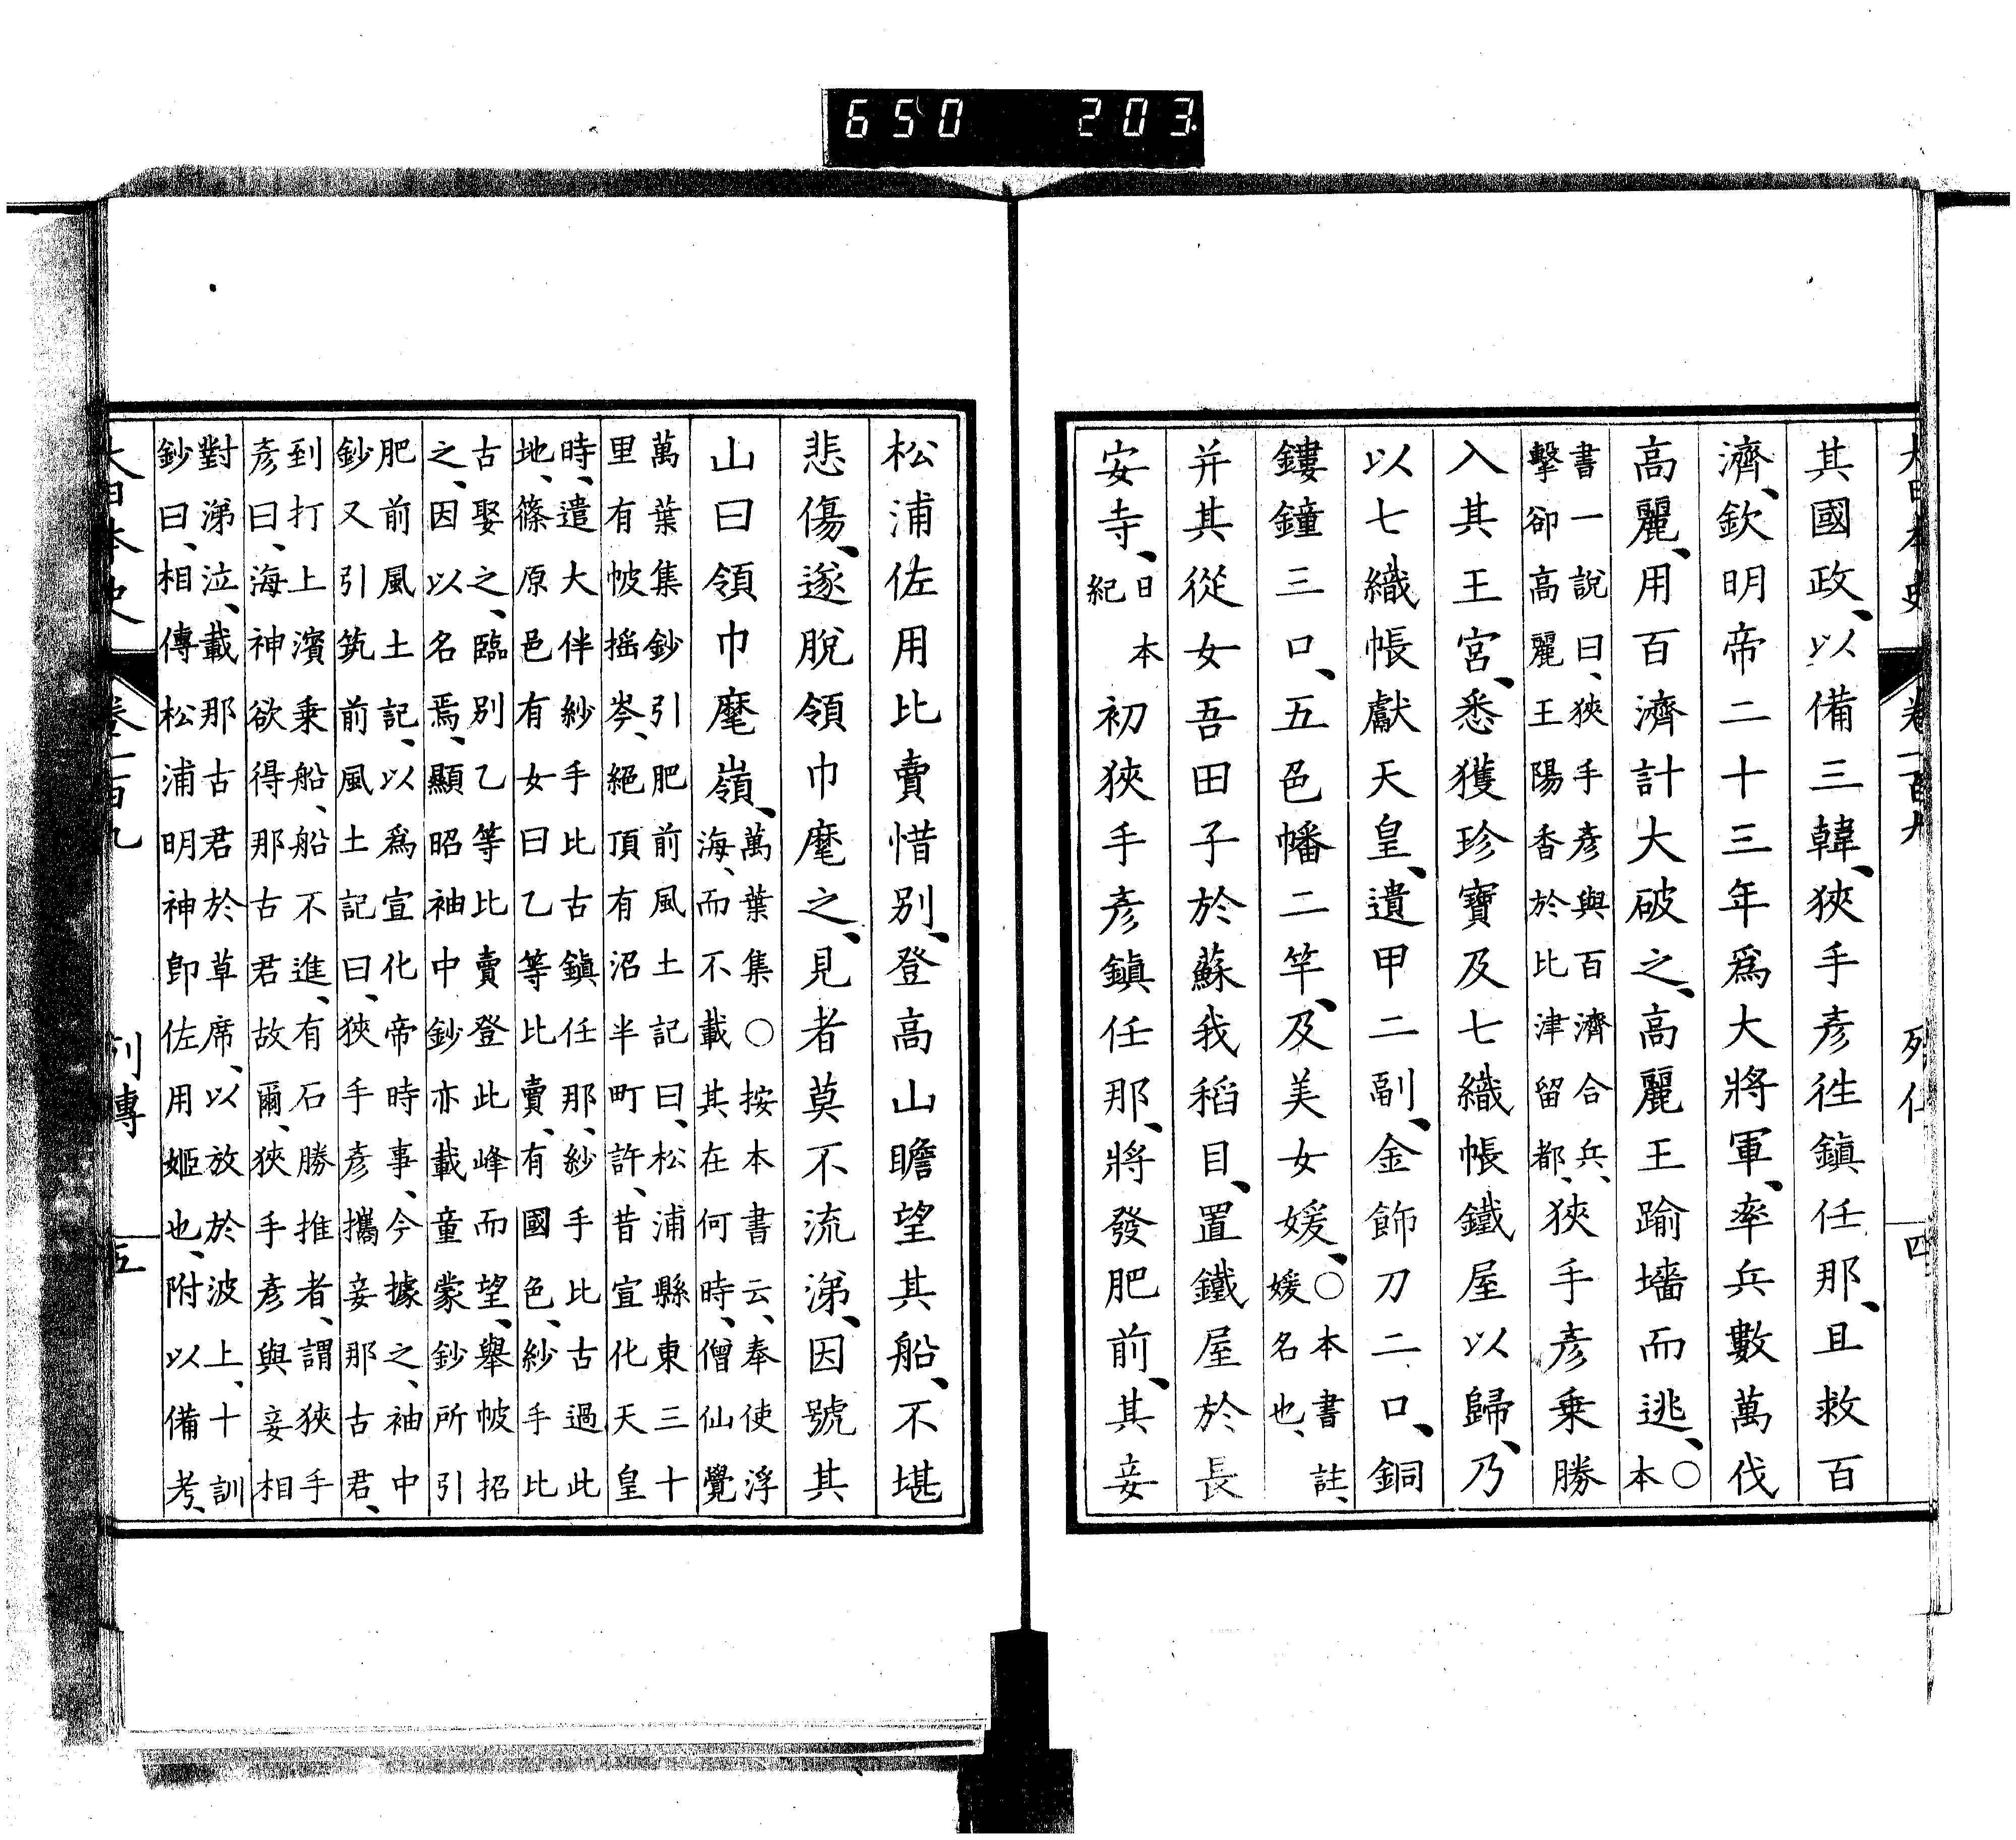 650 203.
大日本史 卷一百九 列傳 四
其國政、以備三韓、狹手彥徃鎭任那、且救百
濟、欽明帝二十三年爲大將軍、率兵數萬伐
高麗、用百濟計大破之、高麗王踰墻而逃、○本
書一說曰、狹手彥與百濟合兵、
擊卻高麗王陽香於比津留都、狹手彥乘勝
入其王宮、悉獲珍寶及七織帳鐵屋以歸、乃
以七織帳獻天皇、遺甲二副、金飾刀二口、銅
鏤鐘三口、五色幡二竿、及美女媛、○本書註、媛名也、
幷其從女吾田子於蘇我稻目、置鐵屋於長
安寺、日本紀初狹手彥鎭任那、將發肥前、其妾
松浦佐用比賣惜別、登高山瞻望其船、不堪
悲傷、遂脫領巾麾之、見者莫不流涕、因號其
山曰領巾麾嶺、萬葉集○按本書云、奉使浮
海、而不載其在何時、僧仙覺
萬葉集鈔引肥前風土記曰、松浦縣東三十
里有帔搖岑、絕頂有沼半町許、昔宣化天皇
時、遣大伴紗手比古鎭任那、紗手比古過此
地、篠原邑有女曰乙等比賣、有國色、紗手比
古娶之、臨別乙等比賣登此峰而望、舉帔招
之、因以名焉、顯昭袖中鈔亦載童蒙鈔所引
肥前風土記、以爲宣化帝時事、今據之、袖中
鈔又引筑前風土記曰、狹手彥攜妾那古君、
到打上濱乘船、船不進、有石勝推者、謂狹手
彥曰、海神欲得那古君故爾、狹手彥與妾相
對涕泣、載那古君於草席、以放於波上、十訓
鈔曰、相傳松浦明神卽佐用姬也、附以備考、
大日本史 卷一百九 列傳 五